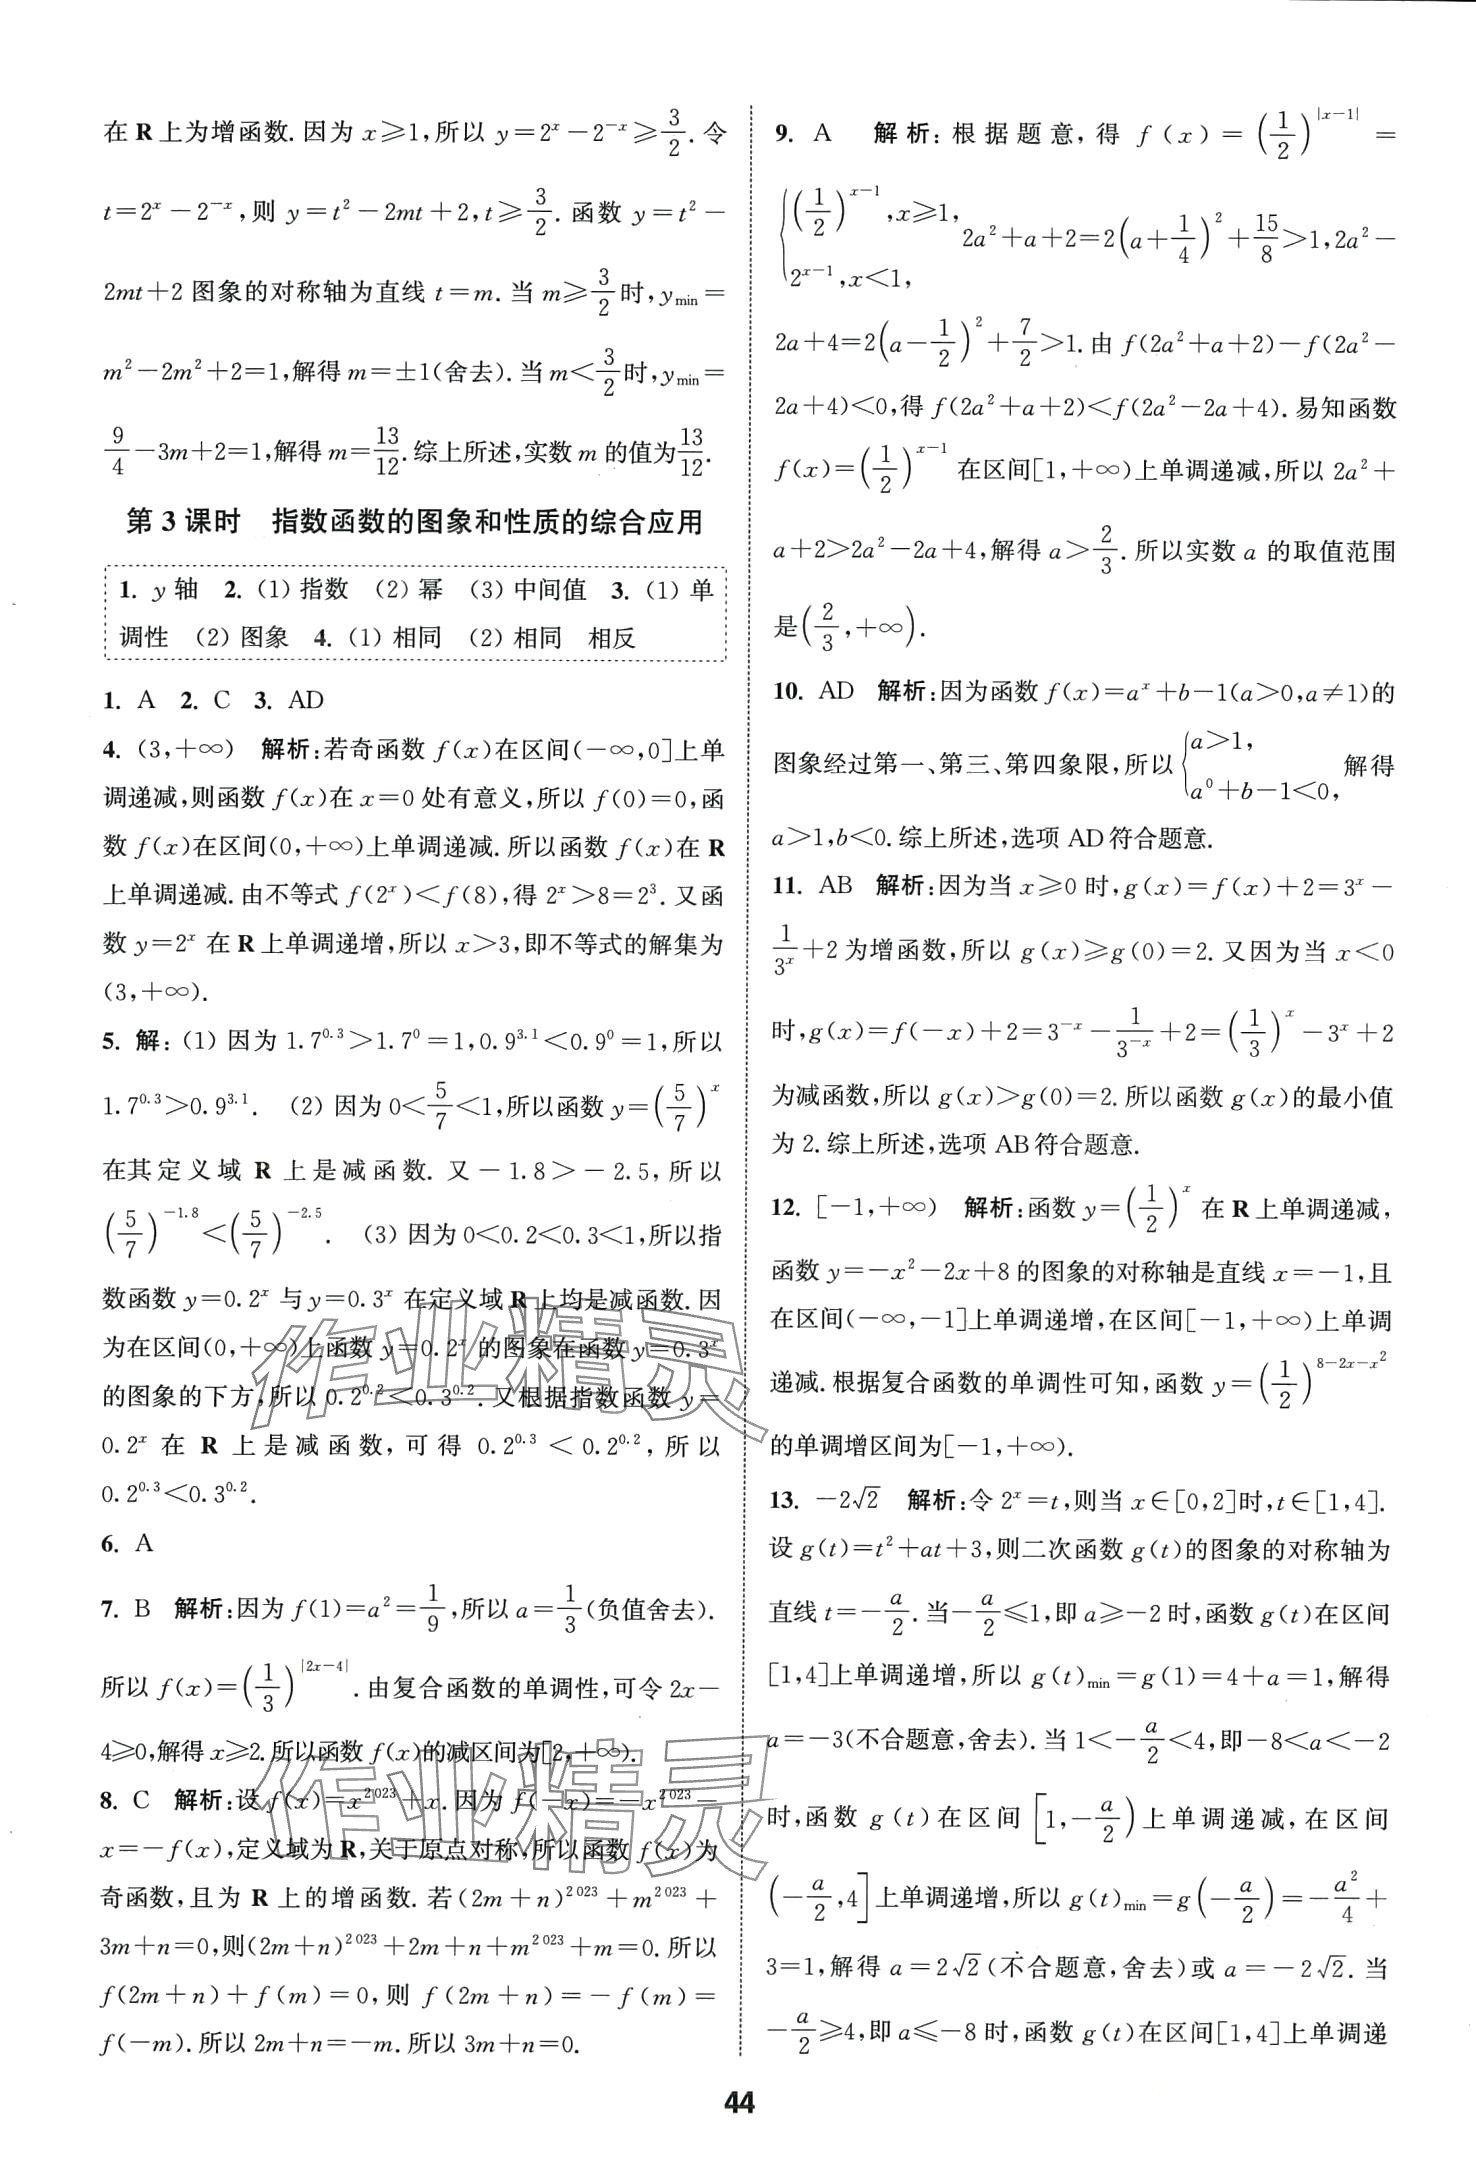 在 R 上为增函数. 因为 x≥1,所以 y=2^x−2^{−x}≥3/2. 令
t=2^x−2^{−x},则 y=t²−2mt+2,t≥3/2. 函数 y=t²−
2mt+2 图象的对称轴为直线 t=m. 当 m≥3/2 时,y_min=
m²−2m²+2=1,解得 m=±1(舍去). 当 m<3/2 时,y_min=
9/4−3m+2=1,解得 m=13/12. 综上所述,实数 m 的值为 13/12.
第 3 课时 指数函数的图象和性质的综合应用
1. y 轴 2. (1) 指数 (2) 幂 (3) 中间值 3. (1) 单
调性 (2) 图象 4. (1) 相同 (2) 相同 相反
1. A 2. C 3. AD
4. (3,+∞) 解析:若奇函数 f(x)在区间(−∞,0]上单
调递减,则函数 f(x)在 x=0 处有意义,所以 f(0)=0,函
数 f(x)在区间(0,+∞)上单调递减. 所以函数 f(x)在 R
上单调递减. 由不等式 f(2^x)<f(8),得 2^x>8=2³. 又函
数 y=2^x 在 R 上单调递增,所以 x>3,即不等式的解集为
(3,+∞).
5. 解:(1) 因为 1.7^{0.3}>1.7^0=1,0.9^{3.1}<0.9^0=1,所以
1.7^{0.3}>0.9^{3.1}. (2) 因为 0<5/7<1,所以函数 y=(5/7)^x
在其定义域 R 上是减函数. 又−1.8>−2.5,所以
(5/7)^{−1.8}<(5/7)^{−2.5}. (3) 因为 0<0.2<0.3<1,所以指
数函数 y=0.2^x 与 y=0.3^x 在定义域 R 上均是减函数. 因
为在区间(0,+∞)上函数 y=0.2^x 的图象在函数 y=0.3^x
的图象的下方,所以 0.2^{0.2}<0.3^{0.2}. 又根据指数函数 y=
0.2^x 在 R 上是减函数,可得 0.2^{0.3}<0.2^{0.2},所以
0.2^{0.3}<0.3^{0.2}.
6. A
7. B 解析:因为 f(1)=a²=1/9,所以 a=1/3(负值舍去).
所以 f(x)=(1/3)^{|2x−4|}. 由复合函数的单调性,可令 2x−
4≥0,解得 x≥2. 所以函数 f(x)的减区间为[2,+∞).
8. C 解析:设 f(x)=x^{2023}+x. 因为 f(−x)=−x^{2023}−
x=−f(x),定义域为 R,关于原点对称,所以函数 f(x)为
奇函数,且为 R 上的增函数. 若(2m+n)^{2023}+m^{2023}+
3m+n=0,则(2m+n)^{2023}+2m+n+m^{2023}+m=0. 所以
f(2m+n)+f(m)=0,则 f(2m+n)=−f(m)=
f(−m). 所以 2m+n=−m. 所以 3m+n=0.
9. A 解析:根据题意,得 f(x)=(1/2)^{|x−1|}=
{(1/2)^{x−1},x≥1, 2^{x−1},x<1, 2a²+a+2=2(a+1/4)²+15/8>1,2a²−
2a+4=2(a−1/2)²+7/2>1. 由 f(2a²+a+2)−f(2a²−
2a+4)<0,得 f(2a²+a+2)<f(2a²−2a+4). 易知函数
f(x)=(1/2)^{x−1} 在区间[1,+∞)上单调递减,所以 2a²+
a+2>2a²−2a+4,解得 a>2/3. 所以实数 a 的取值范围
是(2/3,+∞).
10. AD 解析:因为函数 f(x)=a^x+b−1(a>0,a≠1)的
图象经过第一、第三、第四象限,所以{a>1, a^0+b−1<0, 解得
a>1,b<0. 综上所述,选项 AD 符合题意.
11. AB 解析:因为当 x≥0 时,g(x)=f(x)+2=3^x−
1/3^x+2 为增函数,所以 g(x)≥g(0)=2. 又因为当 x<0
时,g(x)=f(−x)+2=3^{−x}−1/3^{−x}+2=(1/3)^x−3^x+2
为减函数,所以 g(x)>g(0)=2. 所以函数 g(x)的最小值
为 2. 综上所述,选项 AB 符合题意.
12. [−1,+∞) 解析:函数 y=(1/2)^x 在 R 上单调递减,
函数 y=−x²−2x+8 的图象的对称轴是直线 x=−1,且
在区间(−∞,−1]上单调递增,在区间[−1,+∞)上单调
递减. 根据复合函数的单调性可知,函数 y=(1/2)^{8−2x−x²}
的单调增区间为[−1,+∞).
13. −2√2 解析:令 2^x=t,则当 x∈[0,2]时,t∈[1,4].
设 g(t)=t²+at+3,则二次函数 g(t)的图象的对称轴为
直线 t=−a/2. 当−a/2≤1,即 a≥−2 时,函数 g(t)在区间
[1,4]上单调递增,所以 g(t)_min=g(1)=4+a=1,解得
a=−3(不合题意,舍去). 当 1<−a/2<4,即−8<a<−2
时,函数 g(t)在区间[1,−a/2)上单调递减,在区间
(−a/2,4]上单调递增,所以 g(t)_min=g(−a/2)=−a²/4+
3=1,解得 a=2√2(不合题意,舍去)或 a=−2√2. 当
−a/2≥4,即 a≤−8 时,函数 g(t)在区间[1,4]上单调递
44
作业精灵
作业精灵